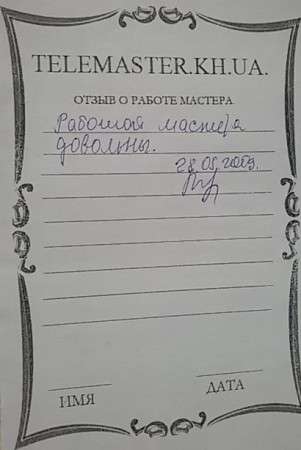 TELEMASTER.KH.UA.
ОТЗЫВ О РАБОТЕ МАСТЕРА
Работой мастера
довольны.
28.05.2009.
ИМЯ
ДАТА